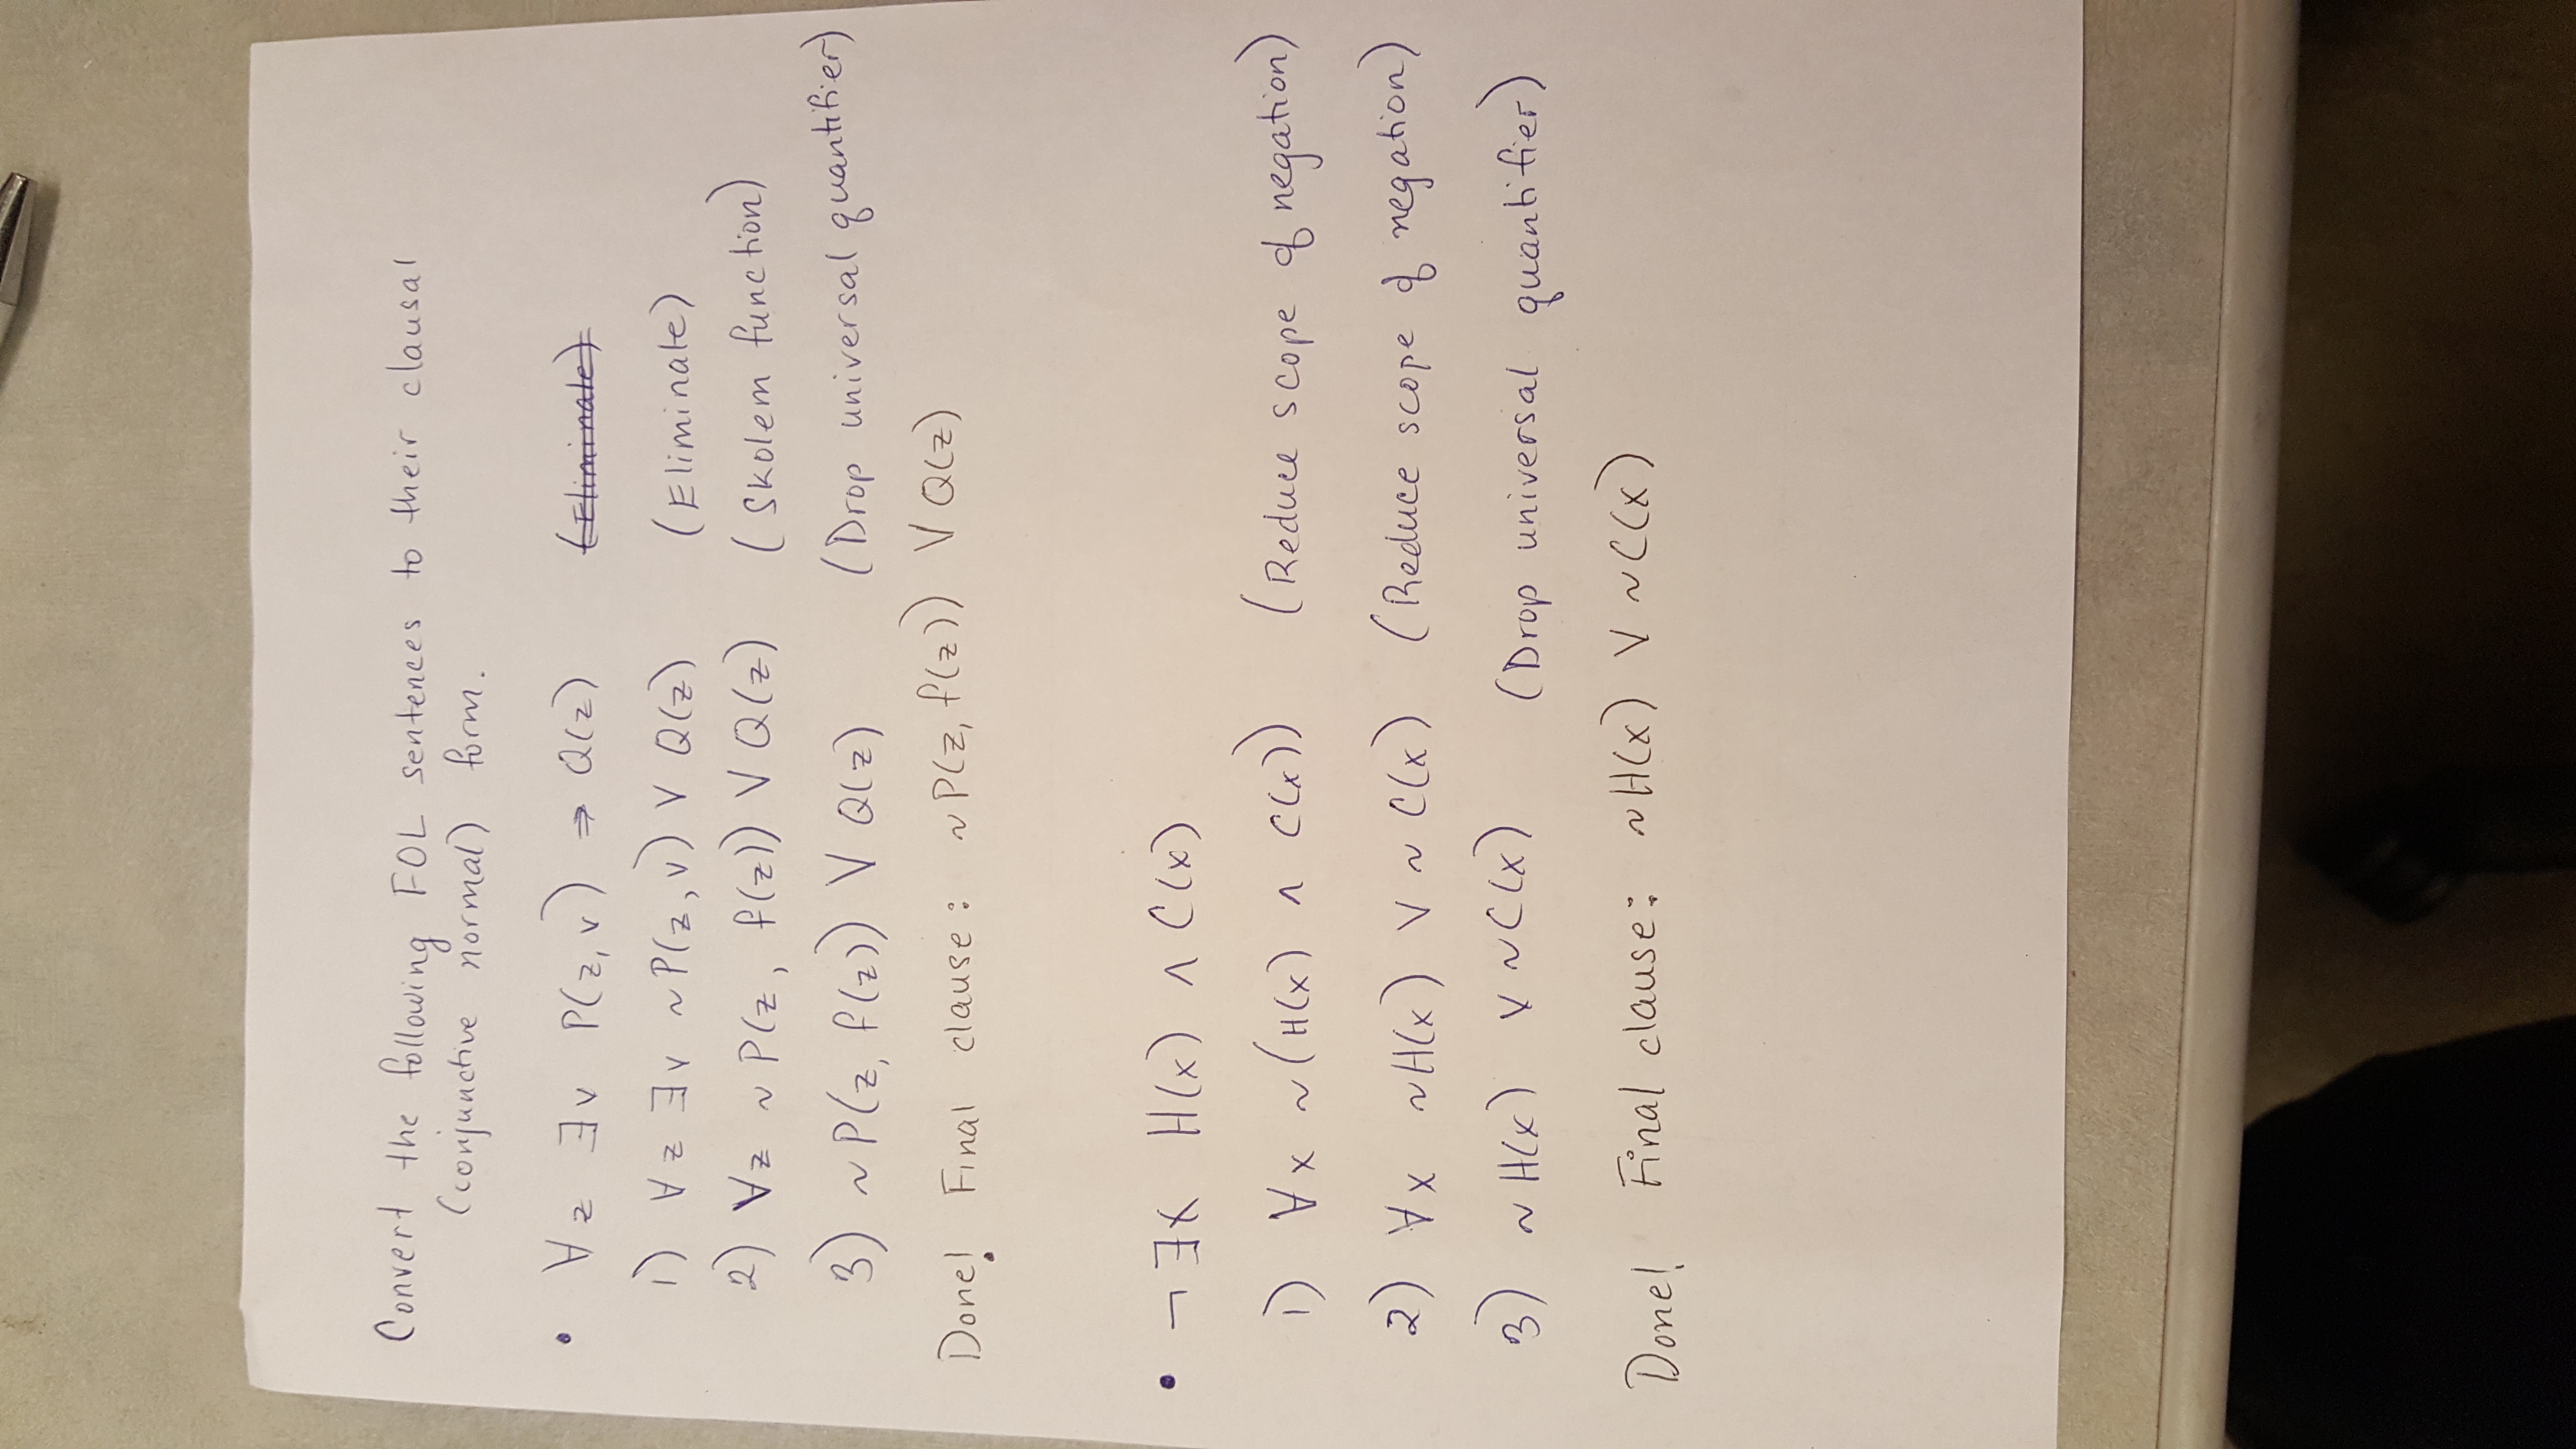 Convert the following FOL sentences to their clausal
(conjunctive normal) form.
• ∀z ∃v P(z, v) ⇒ Q(z) (Eliminate)
1) ∀z ∃v ~P(z, v) ∨ Q(z) (Eliminate)
2) ∀z ~P(z, f(z)) ∨ Q(z) (Skolem function)
3) ~P(z, f(z)) ∨ Q(z) (Drop universal quantifier)
Done! Final clause: ~P(z, f(z)) ∨ Q(z)
• ¬∃x H(x) ∧ C(x)
1) ∀x ~(H(x) ∧ C(x)) (Reduce scope of negation)
2) ∀x ~H(x) ∨ ~C(x) (Reduce scope of negation)
3) ~H(x) ∨ ~C(x) (Drop universal quantifier)
Done! Final clause: ~H(x) ∨ ~C(x)